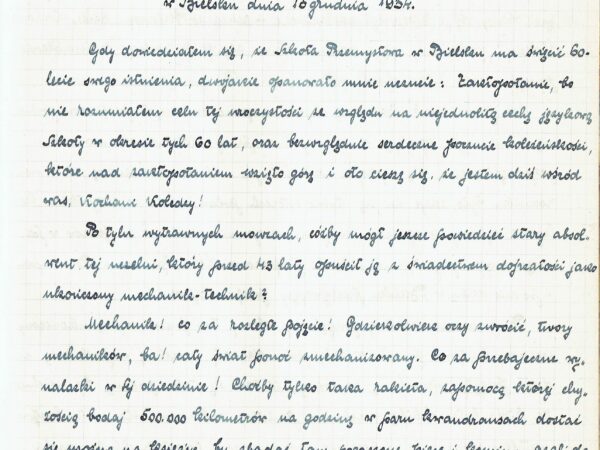 w Bielsku dnia 15 grudnia 1934.
Gdy dowiedziałem się, że Szkoła Przemysłowa w Bielsku ma święcić 60-
lecie swego istnienia, dwojakie opanowało mnie uczucie: Zakłopotanie, bo
nie rozumiałem celu tej uroczystości ze względu na niejednolitą cechę językową
Szkoły w okresie tych 60 lat, oraz bezwzględnie serdeczne poczucie koleżeńskości,
które nad zakłopotaniem wzięło górę i oto cieszę się, że jestem dziś wśród
was, Kochani Koledzy!
Po tylu wytrawnych mowcach, cóżby mógł jeszcze powiedzieć stary absol-
went tej uczelni, który przed 43 laty opuścił ją z świadectwem dojrzałości jako
ukończony mechanik-technik?
Mechanik! co za rozległe pojęcie! Gdziekolwiek oczy zwrócić, twory
mechaników, ba! cały świat ponoć zmechanizowany. Co za przebajeczne wy-
nalazki w tej dziedzinie! Choćby tylko taka rakieta, zapomocą której chy-
żością bodaj 500.000 kilometrów na godzinę w paru kwandransach dostać
się można na księżyc, by zbadać tam